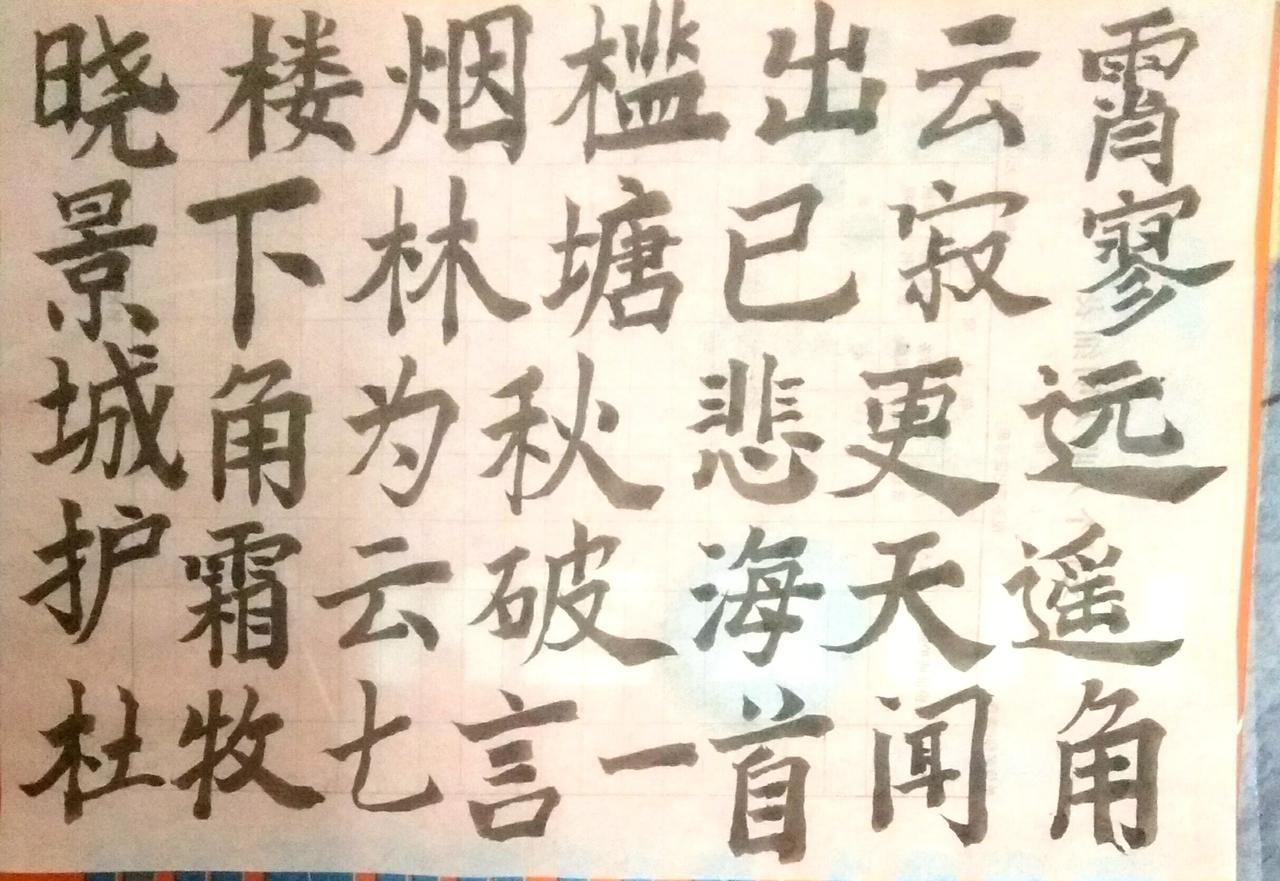 晓楼烟槛出云霄
景下林塘已寂寥
城角为秋悲更远
护霜云破海天遥
杜牧七言一首闻角